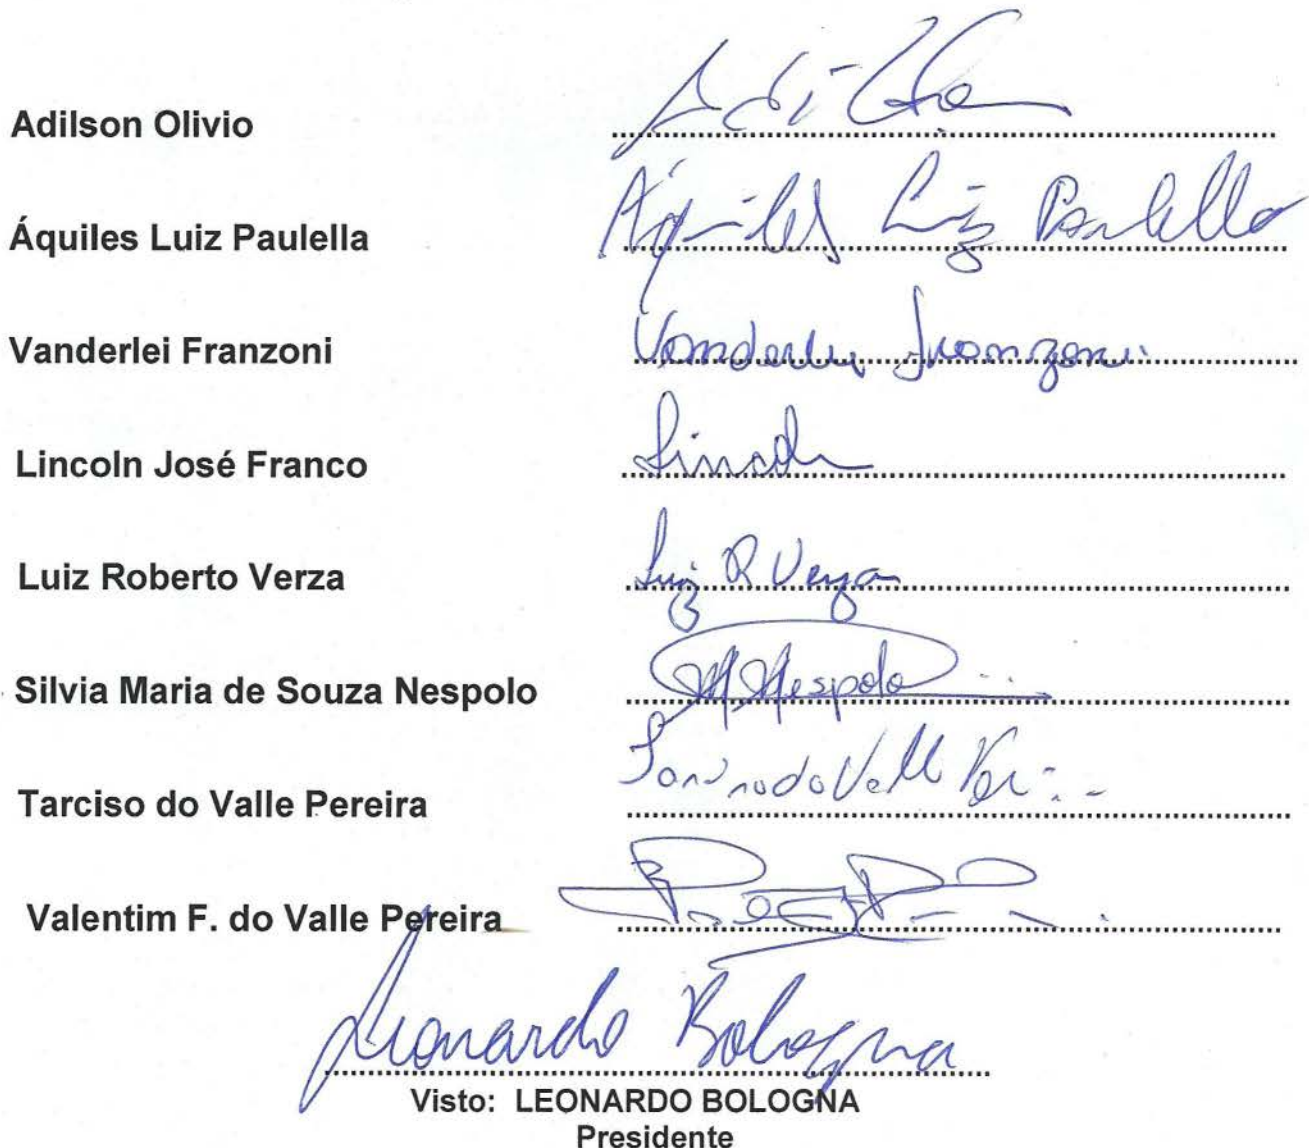 Adilson Olivio
Áquiles Luiz Paulella Áquiles Luiz Paulella
Vanderlei Franzoni Vanderlei Franzoni
Lincoln José Franco Lincoln
Luiz Roberto Verza Luiz R Verza
Silvia Maria de Souza Nespolo Nespolo
Tarciso do Valle Pereira do Valle
Valentim F. do Valle Pereira
Leonardo Bologna
Visto: LEONARDO BOLOGNA
Presidente